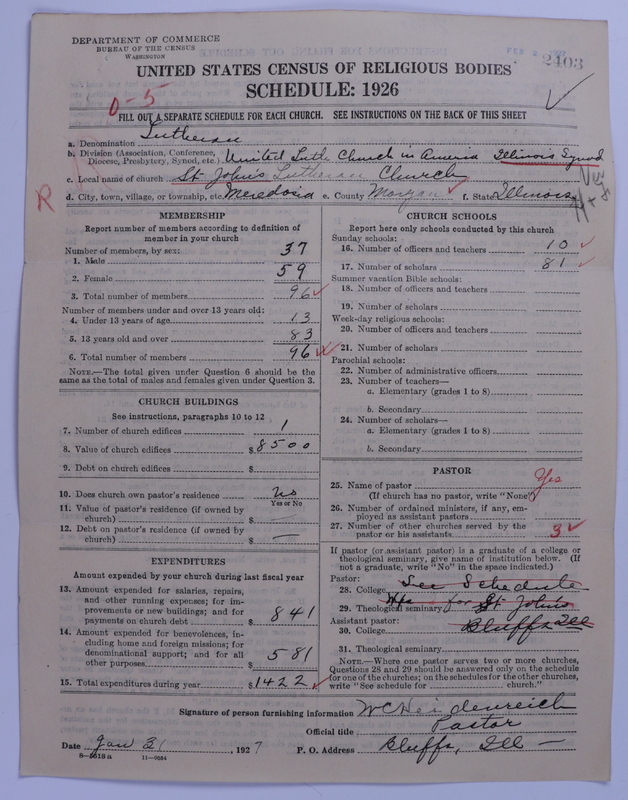 DEPARTMENT OF COMMERCE
BUREAU OF THE CENSUS
WASHINGTON
FEB 2 1927
2403
UNITED STATES CENSUS OF RELIGIOUS BODIES
SCHEDULE: 1926
0-5
FILL OUT A SEPARATE SCHEDULE FOR EACH CHURCH. SEE INSTRUCTIONS ON THE BACK OF THIS SHEET
a. Denomination Lutheran
b. Division (Association, Conference, Diocese, Presbytery, Synod, etc.) United Luth Church in America Illinois Synod
c. Local name of church St John's Lutheran Church
R
d. City, town, village, or township, etc. Meredosia e. County Morgan f. State Illinois
MEMBERSHIP
Report number of members according to definition of
member in your church
Number of members, by sex:
1. Male 37
2. Female 59
3. Total number of members 96
Number of members under and over 13 years old:
4. Under 13 years of age 13
5. 13 years old and over 83
6. Total number of members 96
NOTE.—The total given under Question 6 should be the
same as the total of males and females given under Question 3.
CHURCH BUILDINGS
See instructions, paragraphs 10 to 12
7. Number of church edifices 1
8. Value of church edifices $8500
9. Debt on church edifices $
10. Does church own pastor's residence No
Yes or No
11. Value of pastor's residence (if owned by
church) $ —
12. Debt on pastor's residence (if owned by
church) $ —
EXPENDITURES
Amount expended by your church during last fiscal year
13. Amount expended for salaries, repairs,
and other running expenses; for im-
provements or new buildings; and for
payments on church debt $ 841
14. Amount expended for benevolences, in-
cluding home and foreign missions; for
denominational support; and for all
other purposes $ 581
15. Total expenditures during year $1422
CHURCH SCHOOLS
Report here only schools conducted by this church
Sunday schools:
16. Number of officers and teachers 10
17. Number of scholars 81
Summer vacation Bible schools:
18. Number of officers and teachers
19. Number of scholars
Week-day religious schools:
20. Number of officers and teachers
21. Number of scholars
Parochial schools:
22. Number of administrative officers
23. Number of teachers—
a. Elementary (grades 1 to 8)
b. Secondary
24. Number of scholars—
a. Elementary (grades 1 to 8)
b. Secondary
PASTOR
25. Name of pastor Yes
(If church has no pastor, write "None")
26. Number of ordained ministers, if any, em-
ployed as assistant pastors
27. Number of other churches served by the
pastor or his assistants 3
If pastor (or assistant pastor) is a graduate of a college or
theological seminary, give name of institution below. (If
not a graduate, write "No" in the space indicated.)
Pastor:
28. College See Schedule
29. Theological seminary for St John's
Assistant pastor:
30. College Bluffs Ill
31. Theological seminary
NOTE.—Where one pastor serves two or more churches,
Questions 28 and 29 should be answered only on the schedule
for one of the churches; on the schedules for the other churches,
write "See schedule for church."
Signature of person furnishing information W C Heidenreich
Official title Pastor
Date Jan 31, 1927 P. O. Address Bluffs, Ill —
8-5618a 11-9054